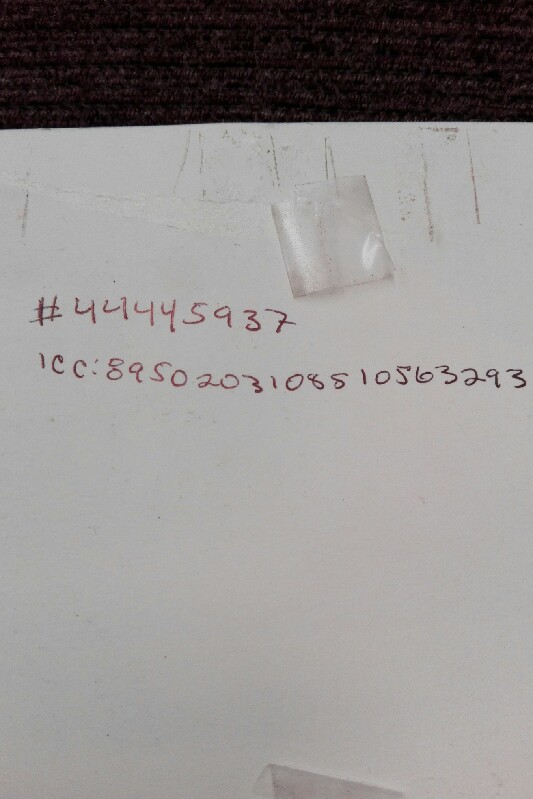 #44445937
ICC:8950203108810563293